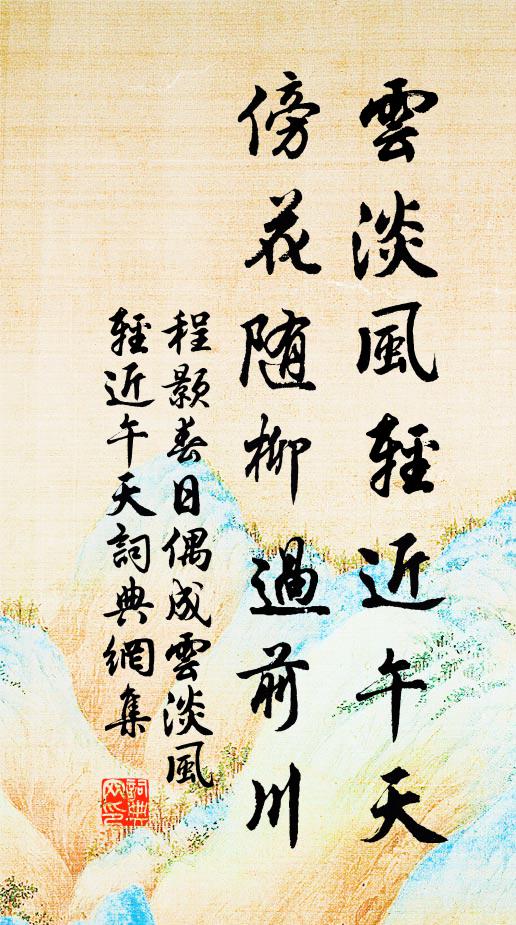 雲淡風輕近午天
傍花随柳過前川
程顥春日偶成雲淡風
輕近午天詞典網集
詞典网印